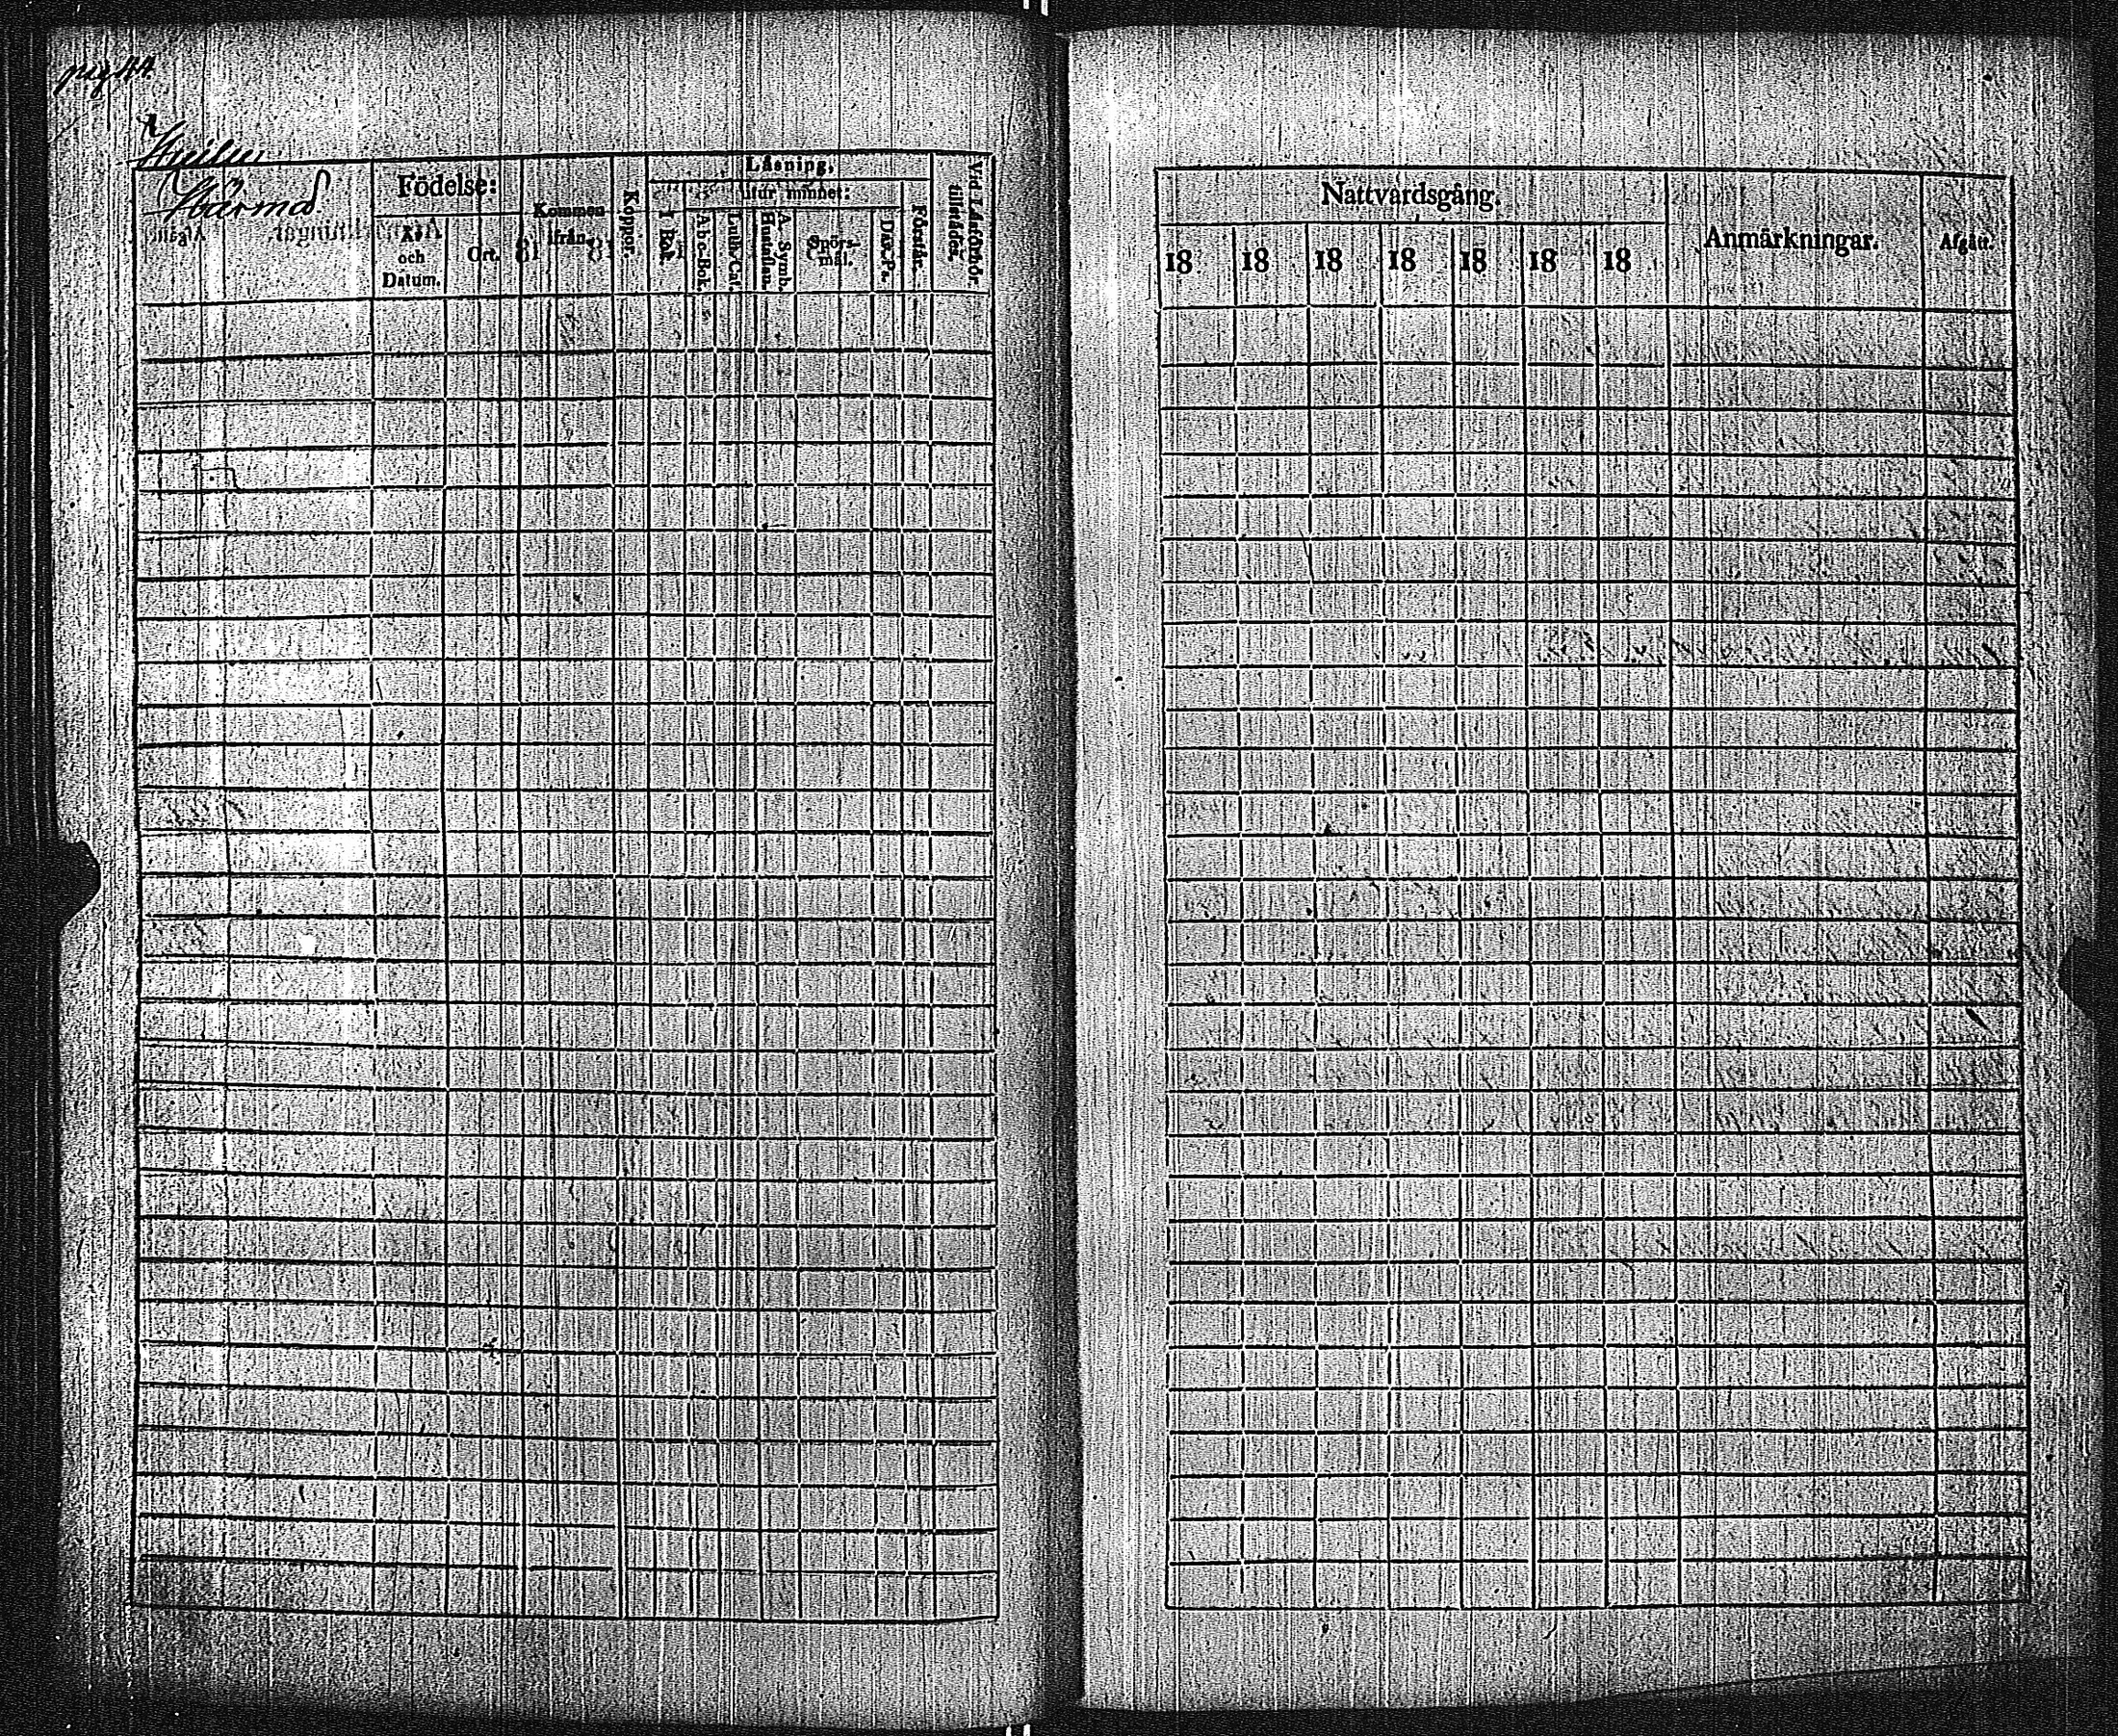 Härmä
Födelse:
År
och
Datum.
Ort.
Kommen
ifrån.
Koppor.
Läsning.
I Bok.
utur minnet:
A b c-Bok.
Luth. Cat.
Hustaflan.
A. Symb.
Spörs-
mål.
Dav. Ps.
Förstår.
Vid Läsförhör
tillstädes.
Nattvardsgång.
18 18 18 18 18 18 18
Anmärkningar.
Afgått.